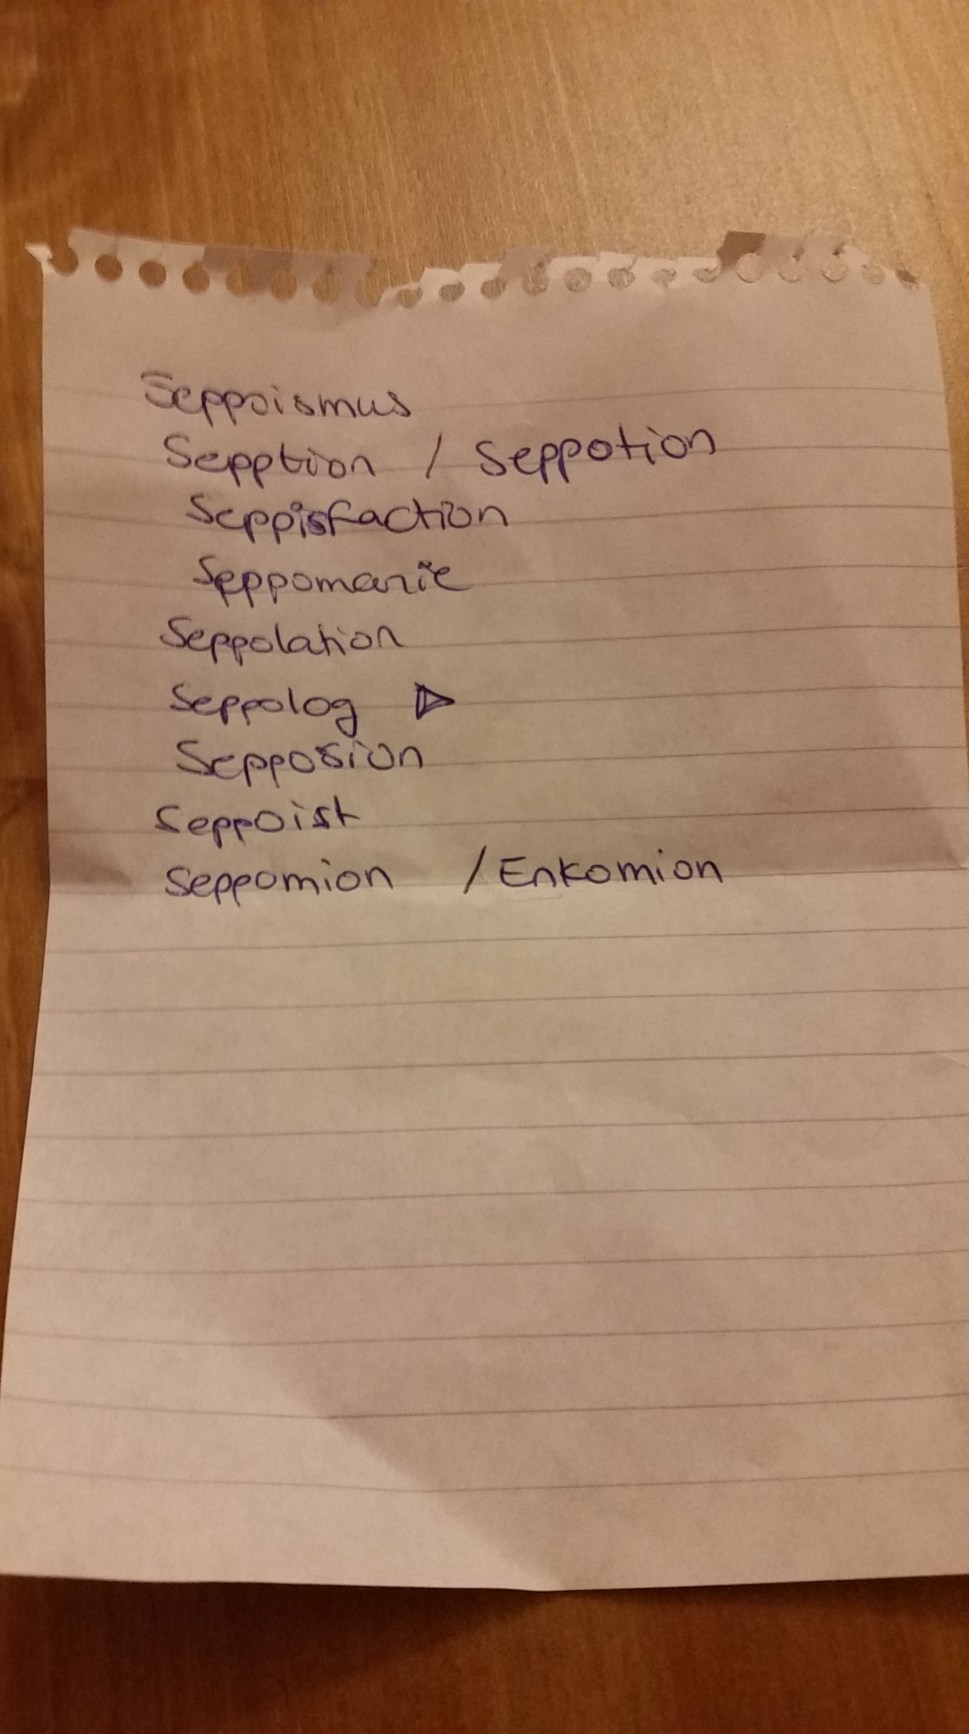 Seppoismus
Sepption / Seppotion
Seppisfaction
Seppomanie
Seppolation
Seppolog
Sepposion
Seppoist
Seppomion / Enkomion